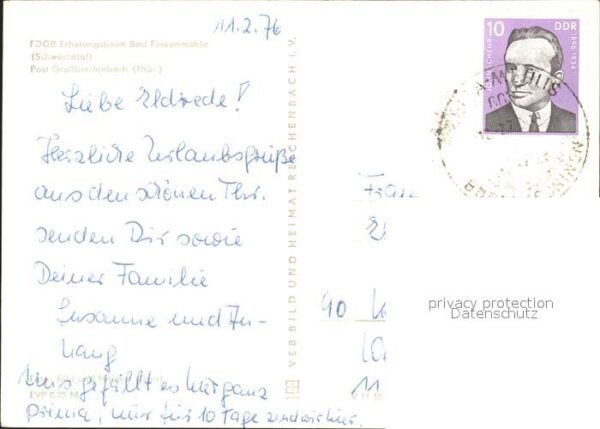 11.2.76
FDGB-Erholungsheim Bad Finkenmühle
(Schwarzatal)
Post Großbreitenbach (Thür.)
Liebe Eldrede!
Herzliche Urlaubsgrüße
aus den schönen Thr.
senden Dir sowie
Deiner Familie
Susanne und An-
hang
Uns gefällt es hier ganz
prima, nur für 10 Tage sind wir hier.
EVP 0,25 M
VEB BILD UND HEIMAT REICHENBACH I. V.
10 DDR
1896-1934
Frau
90
11
privacy protection
Datenschutz